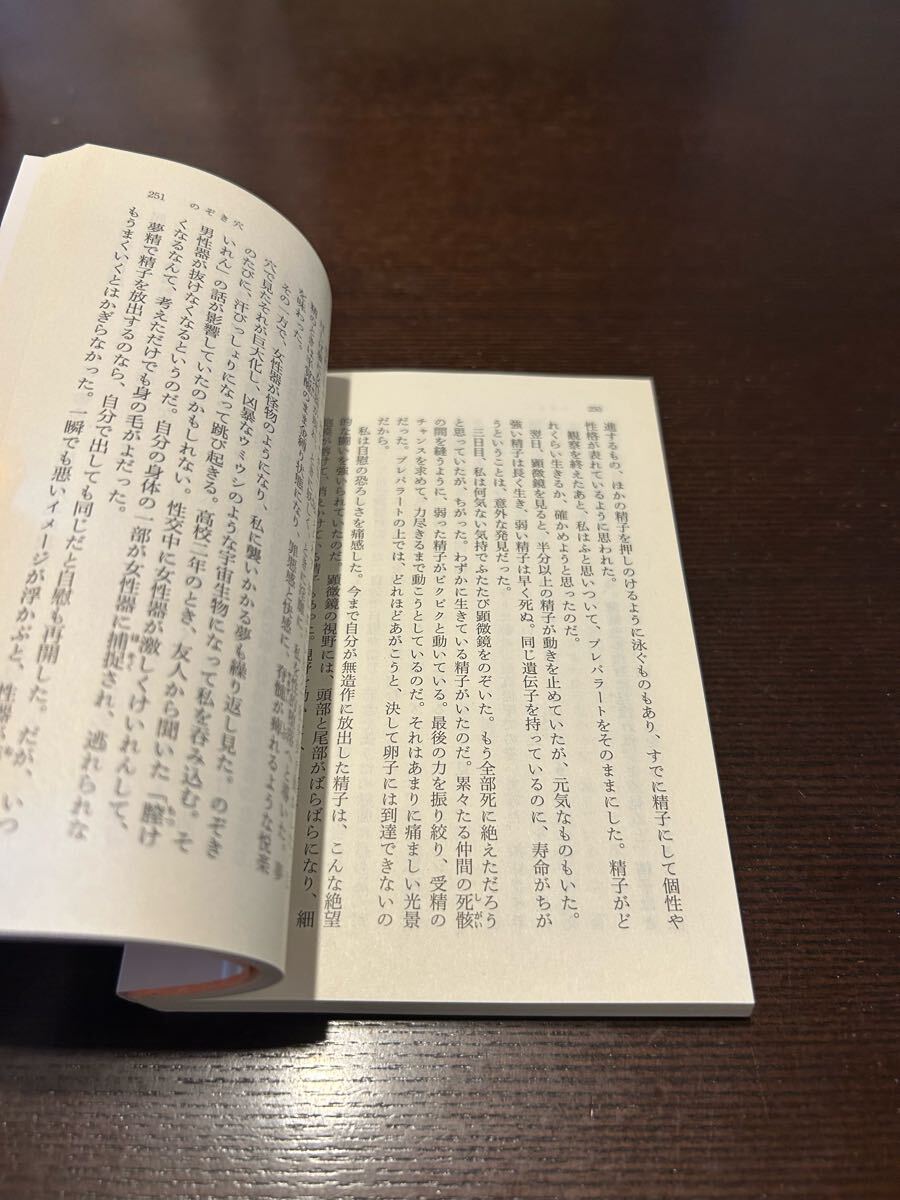 250
進するもの、ほかの精子を押しのけるように泳ぐものもあり、すでに精子にして個性や
性格が表れているように思われた。
観察を終えたあと、私はふと思いついて、プレパラートをそのままにした。精子がど
れくらい生きるか、確かめようと思ったのだ。
翌日、顕微鏡を見ると、半分以上の精子が動きを止めていたが、元気なものもいた。
強い精子は長く生き、弱い精子は早く死ぬ。同じ遺伝子を持っているのに、寿命がちが
うということは、意外な発見だった。
三日目、私は何気ない気持でふたたび顕微鏡をのぞいた。もう全部死に絶えただろう
と思っていたが、ちがった。わずかに生きている精子がいたのだ。累々たる仲間の死骸
しがい
の間を縫うように、弱った精子がピクピクと動いている。最後の力を振り絞り、受精の
チャンスを求めて、力尽きるまで動こうとしているのだ。それはあまりに痛ましい光景
だった。プレパラートの上では、どれほどあがこうと、決して卵子には到達できないの
だから。
私は自慰の恐ろしさを痛感した。今まで自分が無造作に放出した精子は、こんな絶望
的な闘いを強いられていたのだ。顕微鏡の視野には、頭部と尾部がばらばらになり、細
251
のぞき穴
を味わった。
その一方で、女性器が怪物のようになり、私に襲いかかる夢も繰り返し見た。のぞき
穴で見たそれが巨大化し、凶暴なウミウシのような宇宙生物になって私を呑み込む。そ
のたびに、汗びっしょりになって跳び起きる。高校二年のとき、友人から聞いた「膣け
いれん」の話が影響していたのかもしれない。性交中に女性器が激しくけいれんして、
男性器が抜けなくなるというのだ。自分の身体の一部が女性器に捕捉され、逃れられな
くなるなんて、考えただけでも身の毛がよだった。
夢精で精子を放出するのなら、自分で出しても同じだと自慰も再開した。だが、いつ
もうまくいくとはかぎらなかった。一瞬でも悪いイメージが浮かぶと、性器